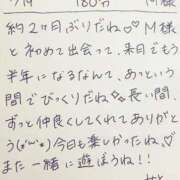 180分
約2ヶ月ぶりだね♡M様
と初めて出会って、来日でもう
半年になるなんて、あっという
間でびっくりだね♡長い間、
ずっと仲良くしてくれてありがと
う(^^)今日も楽しかったね♡
また一緒に遊ぼうね!!